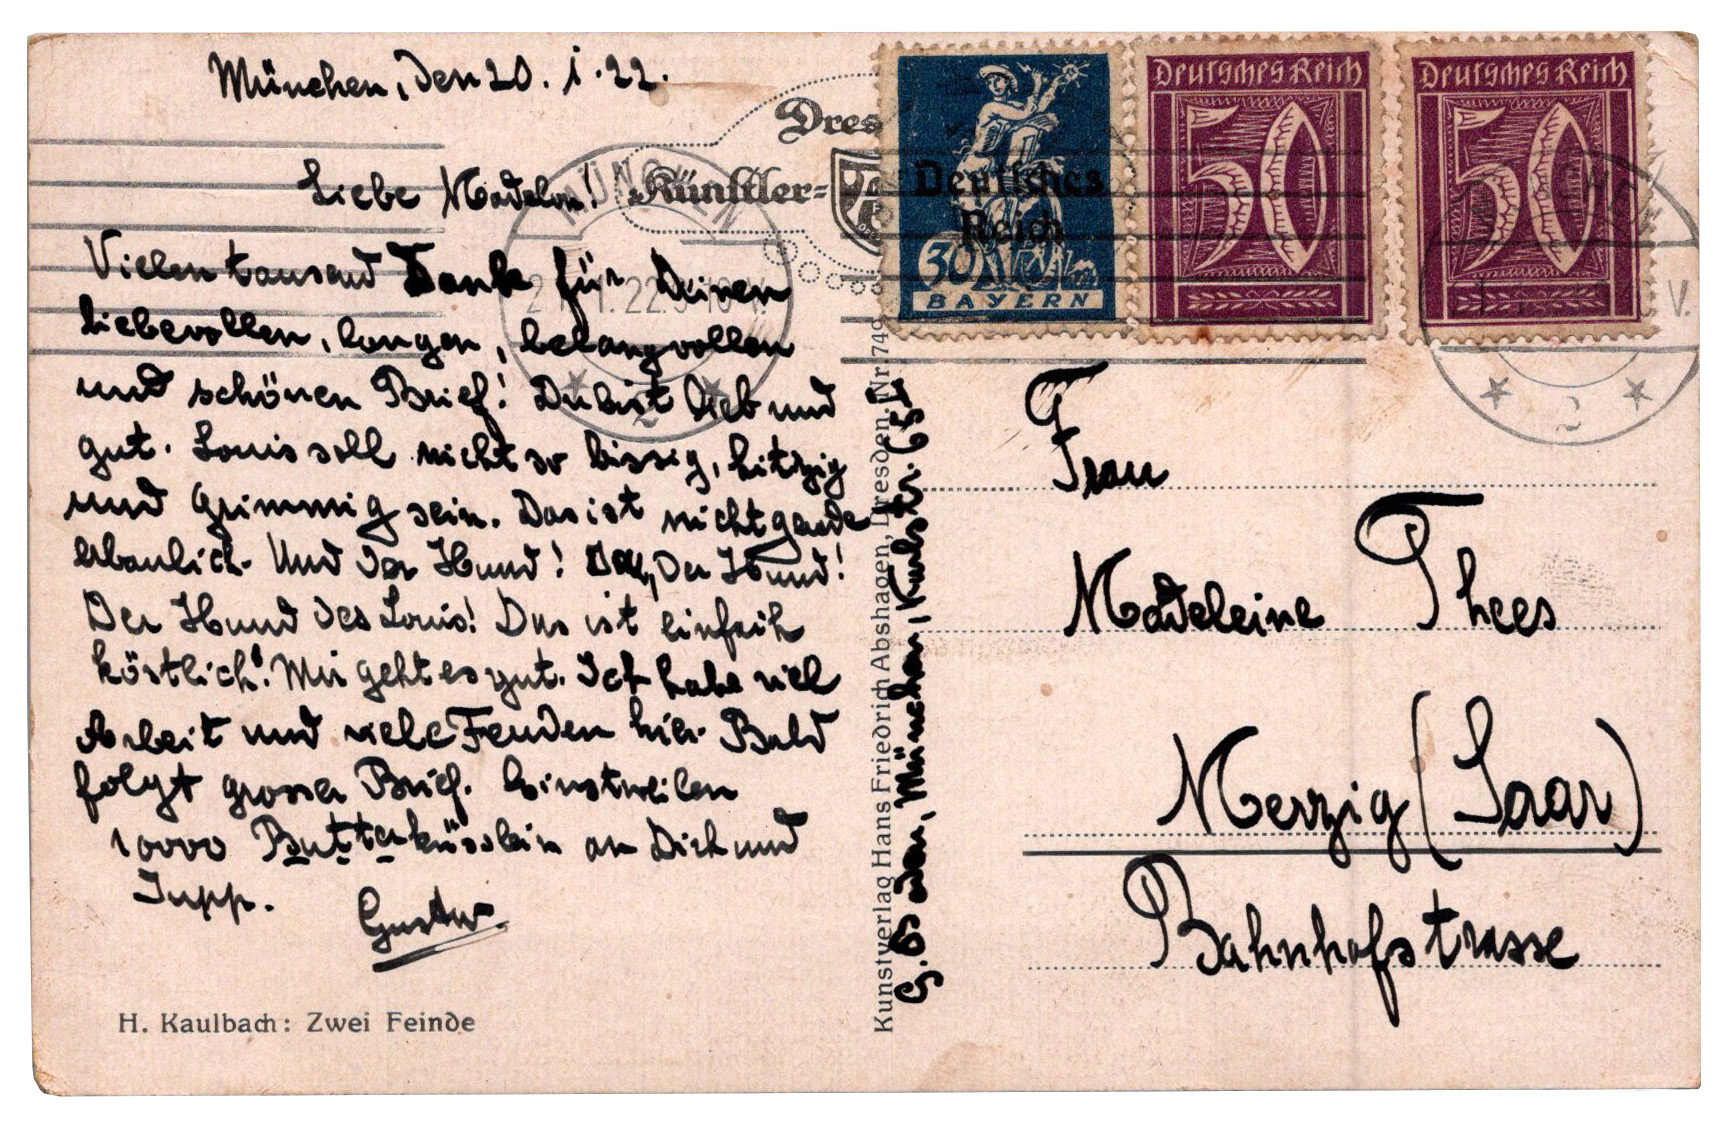 München, den 20. I. 22.
Liebe Madelon!
Vielen tausend Dank für Deinen
liebevollen, langen, belangvollen
und schönen Brief! Du bist lieb und
gut. Louis soll nicht so bissig, hitzig
und grimmig sein. Das ist nicht gerade
erbaulich. Und der Hund! Der Hund!
Der Hund des Louis! Das ist einfach
köstlich! Mir geht es gut. Ich habe viel
Arbeit und viele Freuden hier. Bald
folgt grosser Brief. Einstweilen
10000 Butterküsslein an Dich und
Jupp.
Gustav
H. Kaulbach: Zwei Feinde
Kunstverlag Hans Friedrich Abshagen, Dresden. Nr. 749
München, Karlstr.
Dres
Künstler=
MÜNCHEN
1.22.
2
Deutsches
Reich
30
BAYERN
Deutsches Reich
50
Deutsches Reich
50
CHEN
V.
2
Frau
Madeleine Thees
Merzig (Saar)
Bahnhofstrasse